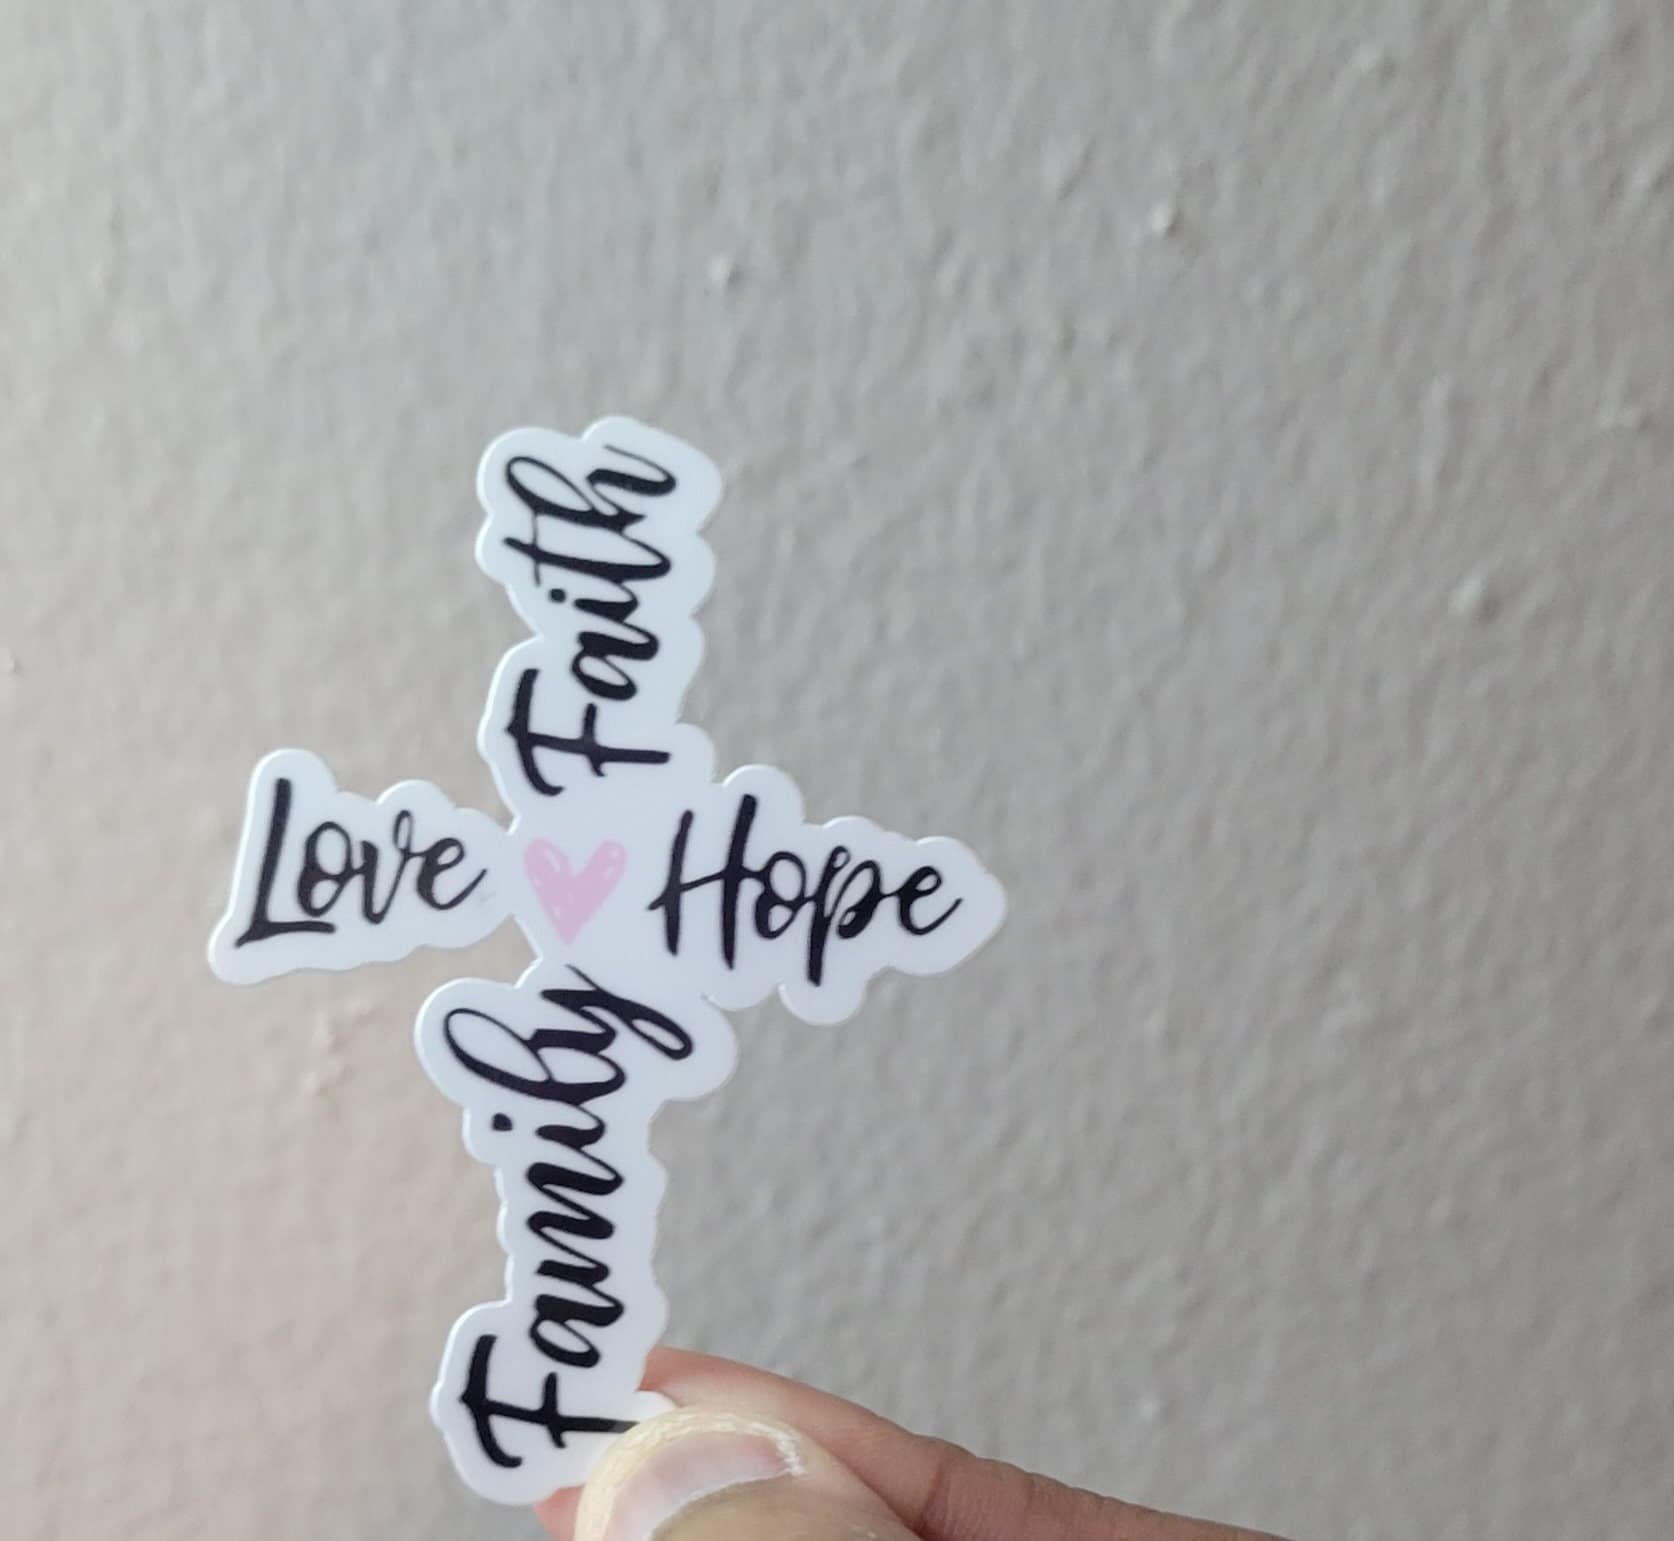 Faith
Love
Hope
Family